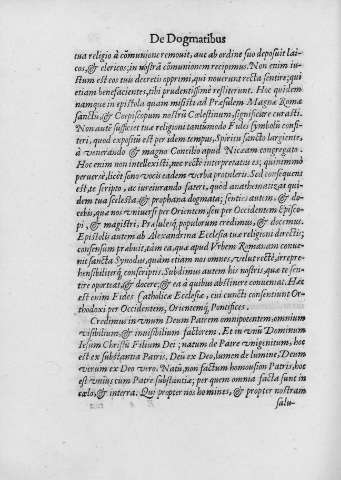 De Dogmatibus
tua religio à cõmunione remouit, aut ab ordine suo deposuit lai-
cos, & clericos; in nostrã cõmunionem recipimus. Non enim iu-
stum est eos tuis decretis opprimi, qui nouerunt recta sentire; qui
etiam benefacientes, tibi prudentissimè restiterunt. Hoc quidem
namque in epistola quam misisti ad Præsulem Magnæ Romæ
sanctũ, & Coepiscopum nostrũ Celestinum, significare curasti.
Non autẽ sufficiet tuæ religioni tantumodo Fidei symbolũ confi-
teri, quod expositũ est per idem tempus, Spiritu sancto largiente,
à venerando & magno Concilio apud Niceam congregato.
Hoc enim non intellexisti, nec rectè interpretatus es; quinimmò
peruersè, licèt sono vocis eadem verba protuleris. Sed consequens
est, te scripto, ac iureiurando fateri, quòd anathematizat qui-
dem tua scelesta, & prophana dogmata; senties autem, & do-
cebis, quæ nos vniuersi per Orientem seu per Occidentem Episco-
pi, & magistri, Præsulesq́; populorum credimus, & docemus.
Epistolis autem ab Alexandrina Ecclesia tuæ religioni directis;
consensum præbuit, tàm ea, quæ apud Vrbem Romanam conue-
nit sancta Synodus, quàm etiam nos omnes, velut rectè, irrepre-
hensibiliterq́; conscriptis. Subdimus autem his nostris, quæ te sen-
tire oporteat, & docere, & ea à quibus abstinere conuenit. Hæc
est enim Fides Catholicæ Ecclesiæ, cui cuncti consentiunt Or-
thodoxi per Occidentem, Orientemq́; Pontifices.
Credimus in vnum Deum Patrem omnipotentem, omnium
visibilium, & inuisibilium factorem. Et in vnũ Dominum
Iesum Christũ Filium Dei; natum de Patre vnigenitum, hoc
est ex substantia Patris. Deũ ex Deo, lumen de lumine, Deum
verum ex Deo vero. Natũ, non factum homousion Patris, hoc
est vnius cum Patre substantiæ; per quem omnia facta sunt in
cœlo, & in terra. Qui propter nos homines, & propter nostram
salu-